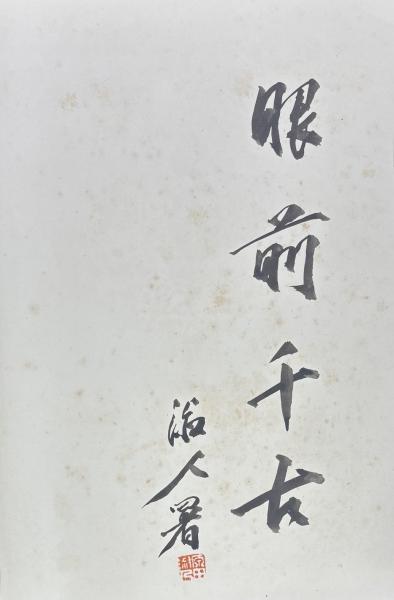 眼前千古
人署